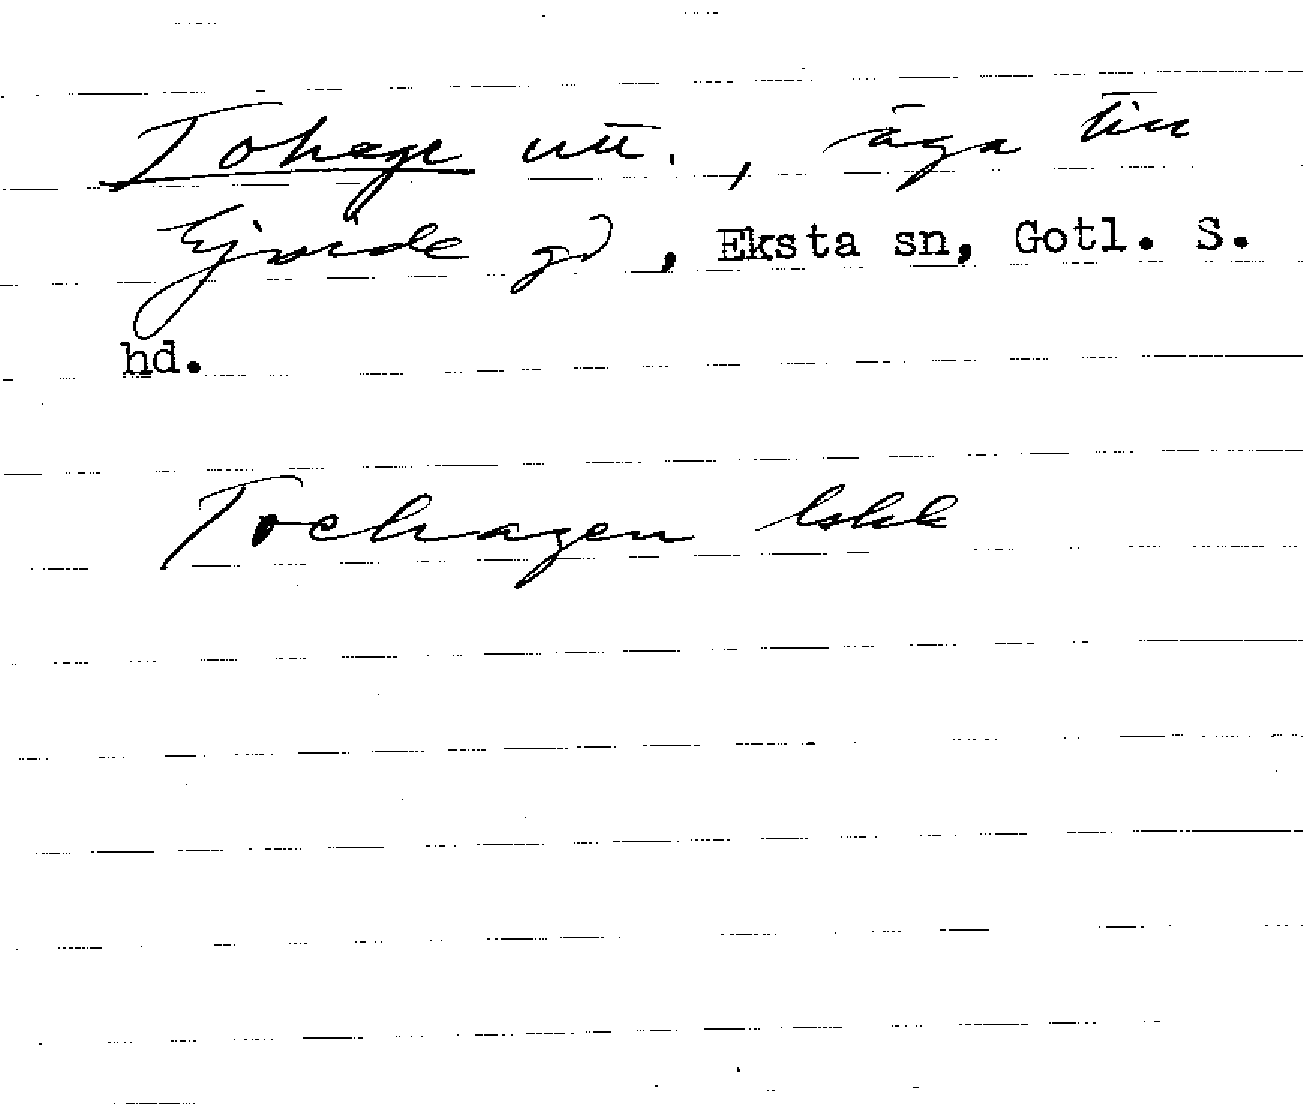 Tohage utt., äga till
Ejmunde gd, Eksta sn, Gotl. S.
hd.
Tochagen lskk